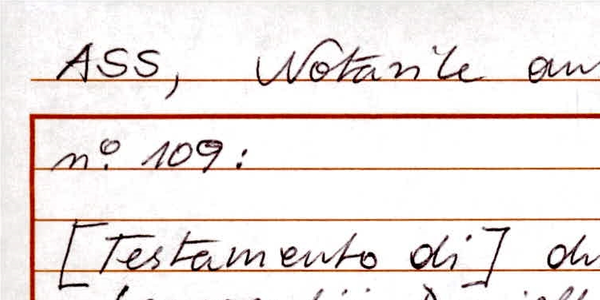 ASS, Notarile an
n° 109:
[Testamento di] du